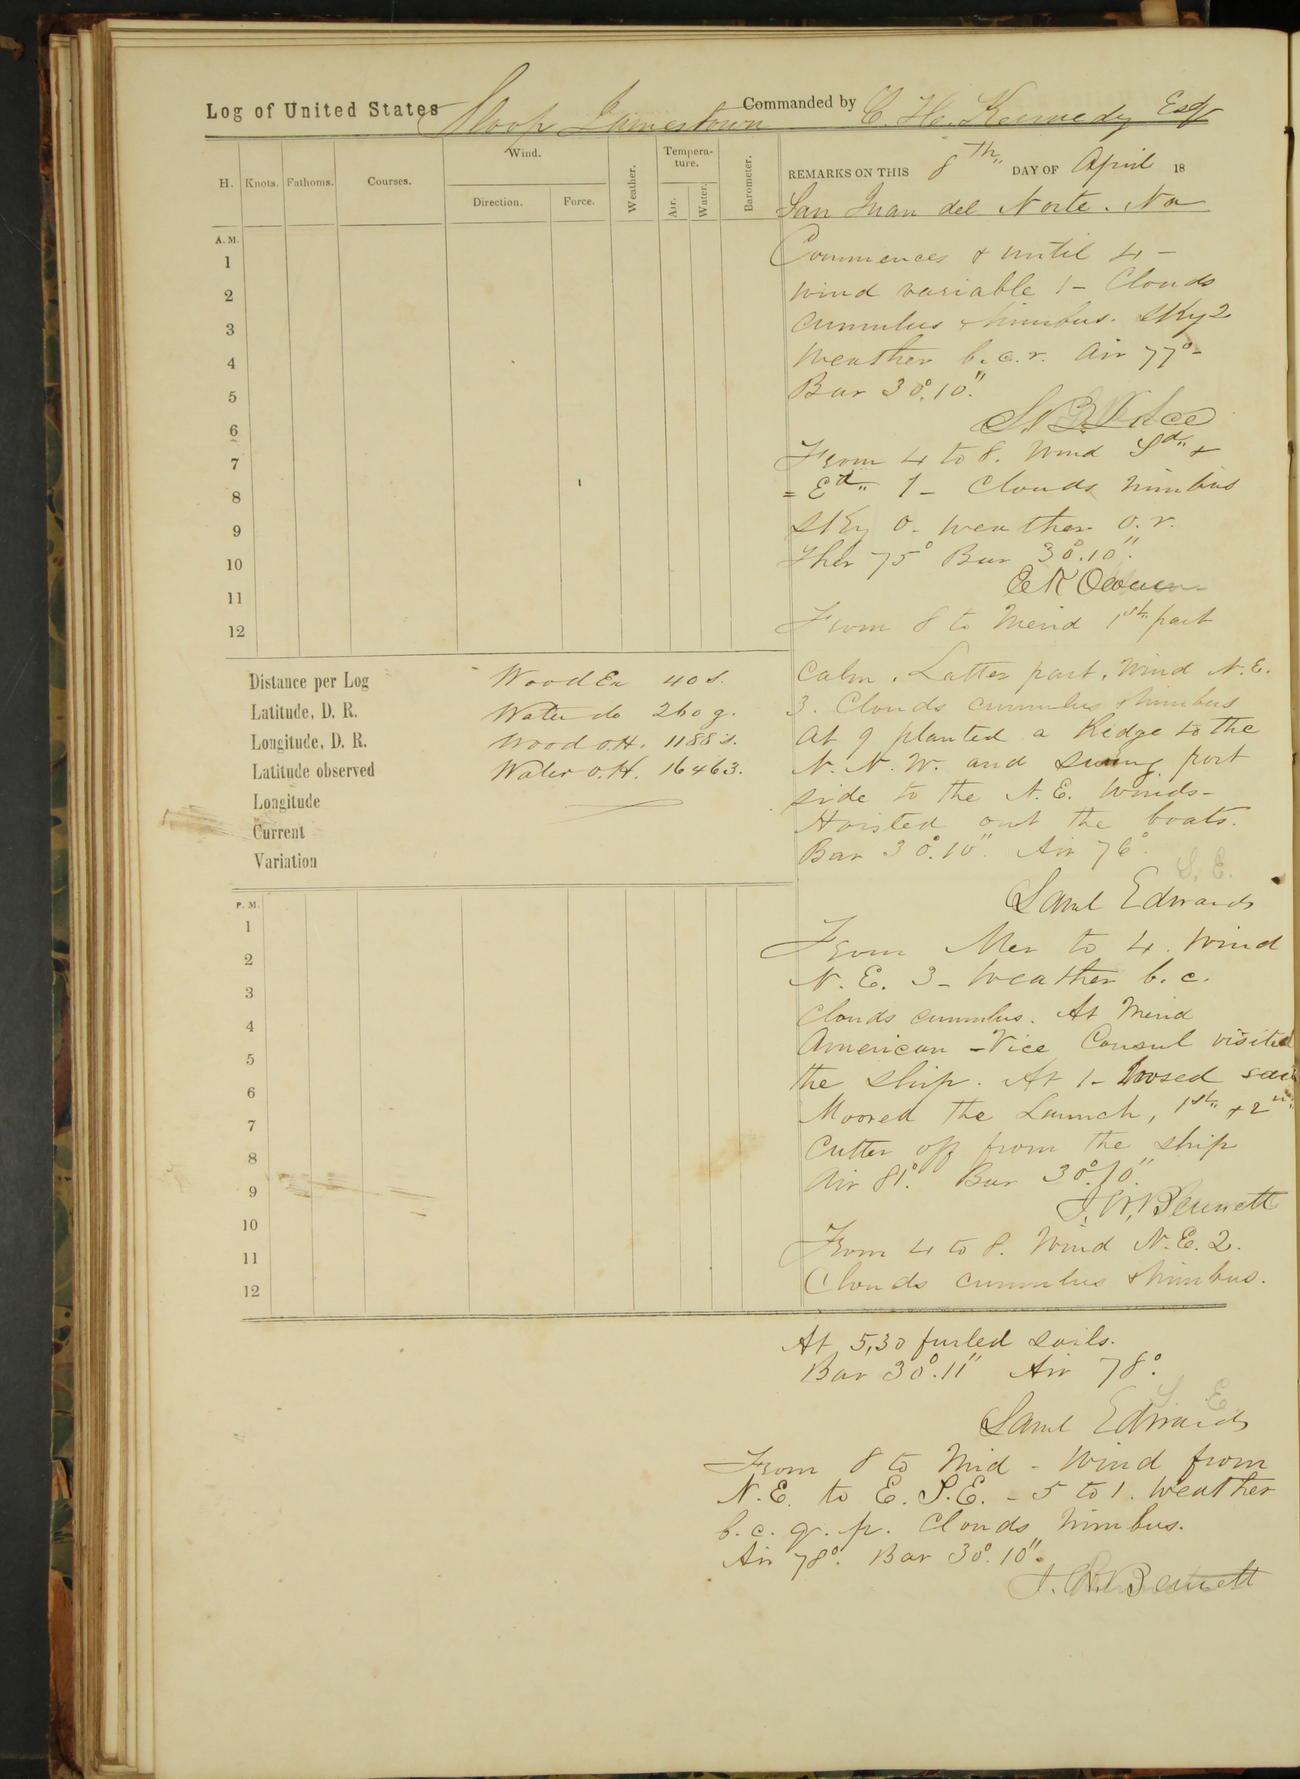 Log of United States Sloop Jamestown Commanded by C. H. Kennedy Esqr
H. Knots. Fathoms. Courses. Wind. Direction. Force. Weather. Tempera-ture. Air. Water. Barometer.
REMARKS ON THIS 8th,, DAY OF April 18
San Juan del Norte. Na
A. M.
1
2
3
4
5
6
7
8
9
10
11
12
Commences & until 4 -
Wind variable 1 - Clouds
cumulus & nimbus. Sky 2
Weather b.c.r. Air 77° -
Bar 30°.10".
S. B.
From 4 to 8. Wind Sd,, &
= Ed,, 1 - Clouds nimbus
Sky 0. weather o.r.
Ther 75° Bar 30°.10".
E K Owen
From 8 to Merid 1st,, part
Calm. Latter part, Wind N.E.
3. Clouds cumulus & nimbus
At 9 planted a Kedge to the
N. N. W. and swung port
side to the N.E. Winds -
Hoisted out the boats.
Bar 30°.10" Air 76°.
S. E.
Saml Edwards
Distance per Log
Latitude, D. R.
Longitude, D. R.
Latitude observed
Longitude
Current
Variation
Wood Ex 40 s.
Water do 260 g.
Wood O.H. 1188 s.
Water O.H. 16463.
P. M.
1
2
3
4
5
6
7
8
9
10
11
12
From Mer to 4. Wind
N. E. 3 - Weather b.c.
Clouds cumulus. At Merid
American - Vice Consul visited
the ship. At 1 - loosed sail
Moored the Launch, 1st,, & 2nd,,
Cutter off from the ship
Air 81°. Bar 30°.10".
J. W. Bennett
From 4 to 8. Wind N.E. 2.
Clouds cumulus & nimbus.
At 5,30 furled sails.
Bar 30°.11" Air 78°.
S. E.
Saml Edwards
From 8 to Mid - Wind from
N.E. to E.S.E. - 5 to 1. Weather
b.c.q.p. Clouds nimbus.
Air 78°. Bar 30°.10".
J. W. Bennett